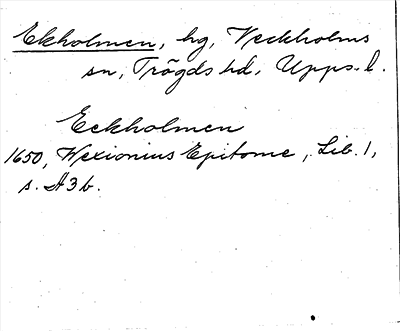 Ekholmen, hg, Veckholms
sn, Trögds hd, Upps. l.
Eckholmen
1650, Wexionius Epitome, Lib. 1,
s. A3b.